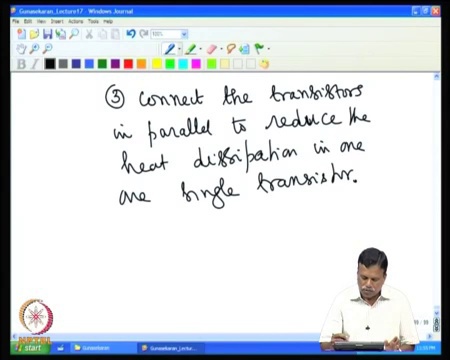 Gunasekaran_Lecture17 - Windows Journal
File Edit View Insert Actions Tools Help
100%
B I
③ Connect the transistors
in parallel to reduce the
heat dissipation in one
one single transistor.
start
Gunasekaran
Gunasekaran_Lectu...